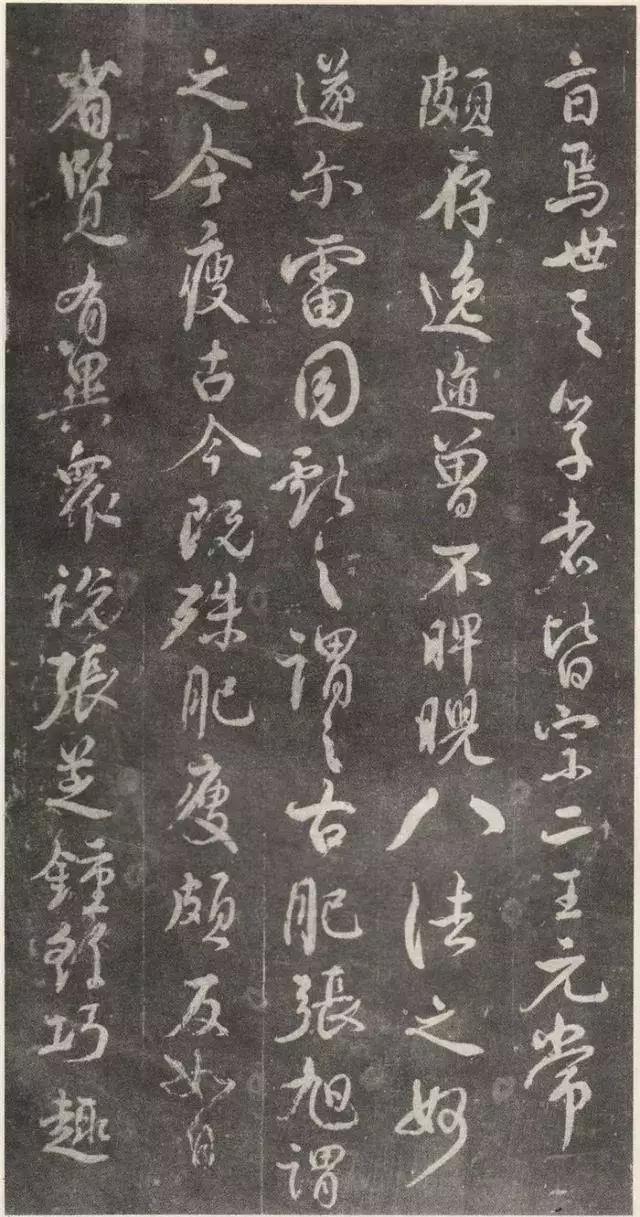 旨焉世之学者皆宗二王元常
頗存逸迹曾不睥睨八法之妙
遂尔雷同獻之謂之古肥張旭謂
之今瘦古今既殊肥瘦頗反如自
省覽有異衆説張芝鍾繇巧趣